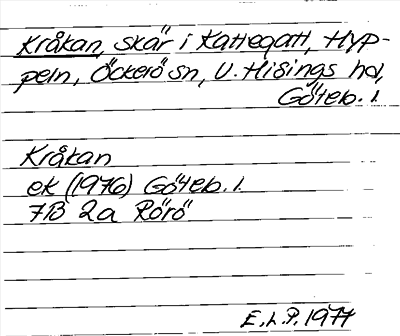 Kråkan, skär i Kattegatt, Hyp-
peln, Öckerö sn, V. Hisings hd,
Göteb. l.
Kråkan
ek (1976) Göteb. l.
7B 2a Rörö
E.h.P. 1977